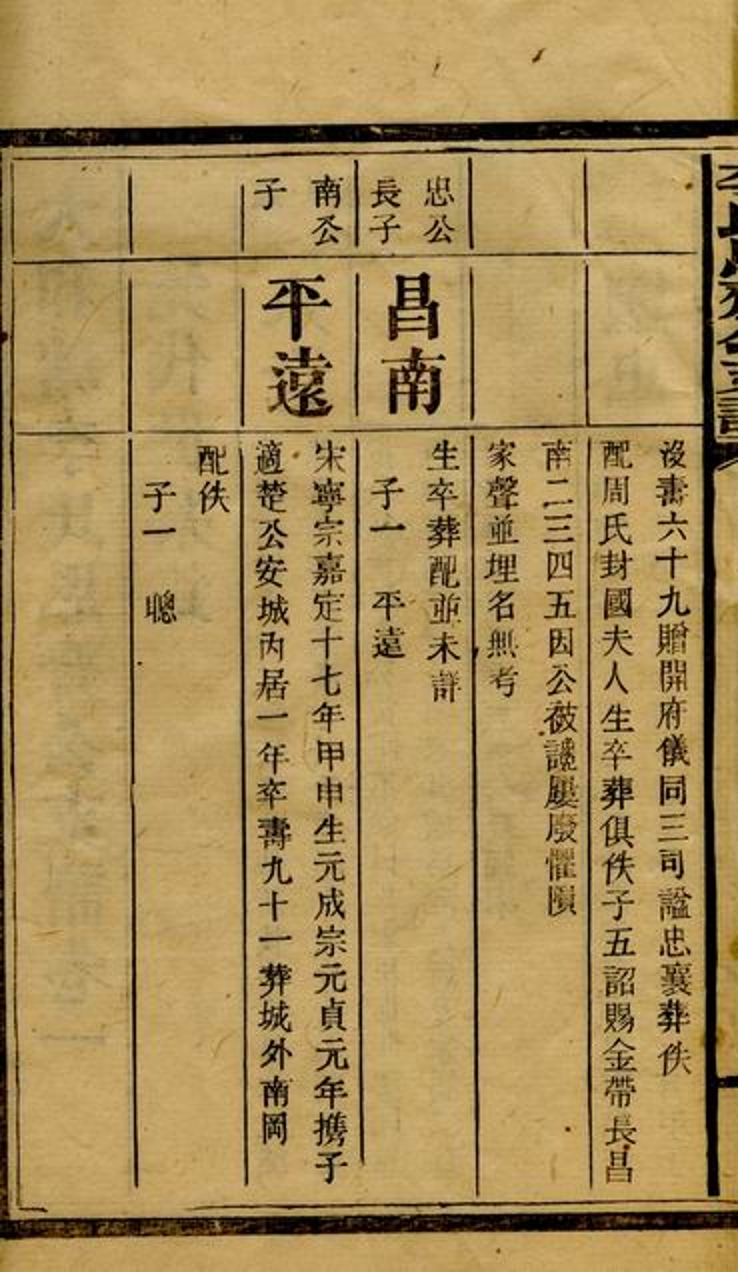 沒壽六十九贈開府儀同三司諡忠襄葬佚
配周氏封國夫人生卒葬俱佚子五詔賜金帶長昌
南二三四五因公被讒屢廢懼隕
家聲並埋名無考
忠公
長子
昌南
生卒葬配並未詳
子一 平遠
南公
子
平遠
宋寧宗嘉定十七年甲申生元成宗元貞元年携子
適楚公安城内居一年卒壽九十一葬城外南岡
配佚
子一 聰